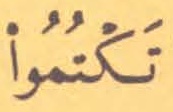 تَكْتُمُواْ